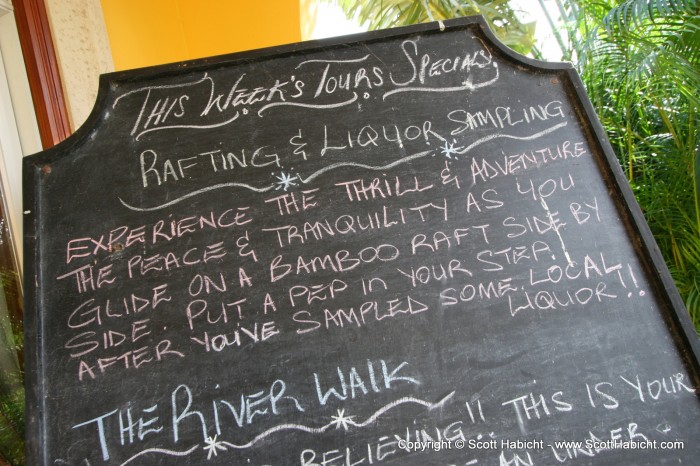 THIS WEEK'S TOURS SPECIALS
RAFTING & LIQUOR SAMPLING
EXPERIENCE THE THRILL & ADVENTURE
THE PEACE & TRANQUILITY AS YOU
GLIDE ON A BAMBOO RAFT SIDE BY
SIDE. PUT A PEP IN YOUR STEP.
AFTER YOU'VE SAMPLED SOME LOCAL
LIQUOR!!
THE RIVER WALK
BELIEVING!! THIS IS YOUR
AN UNDER
Copyright © Scott Habicht - www.ScottHabicht.com